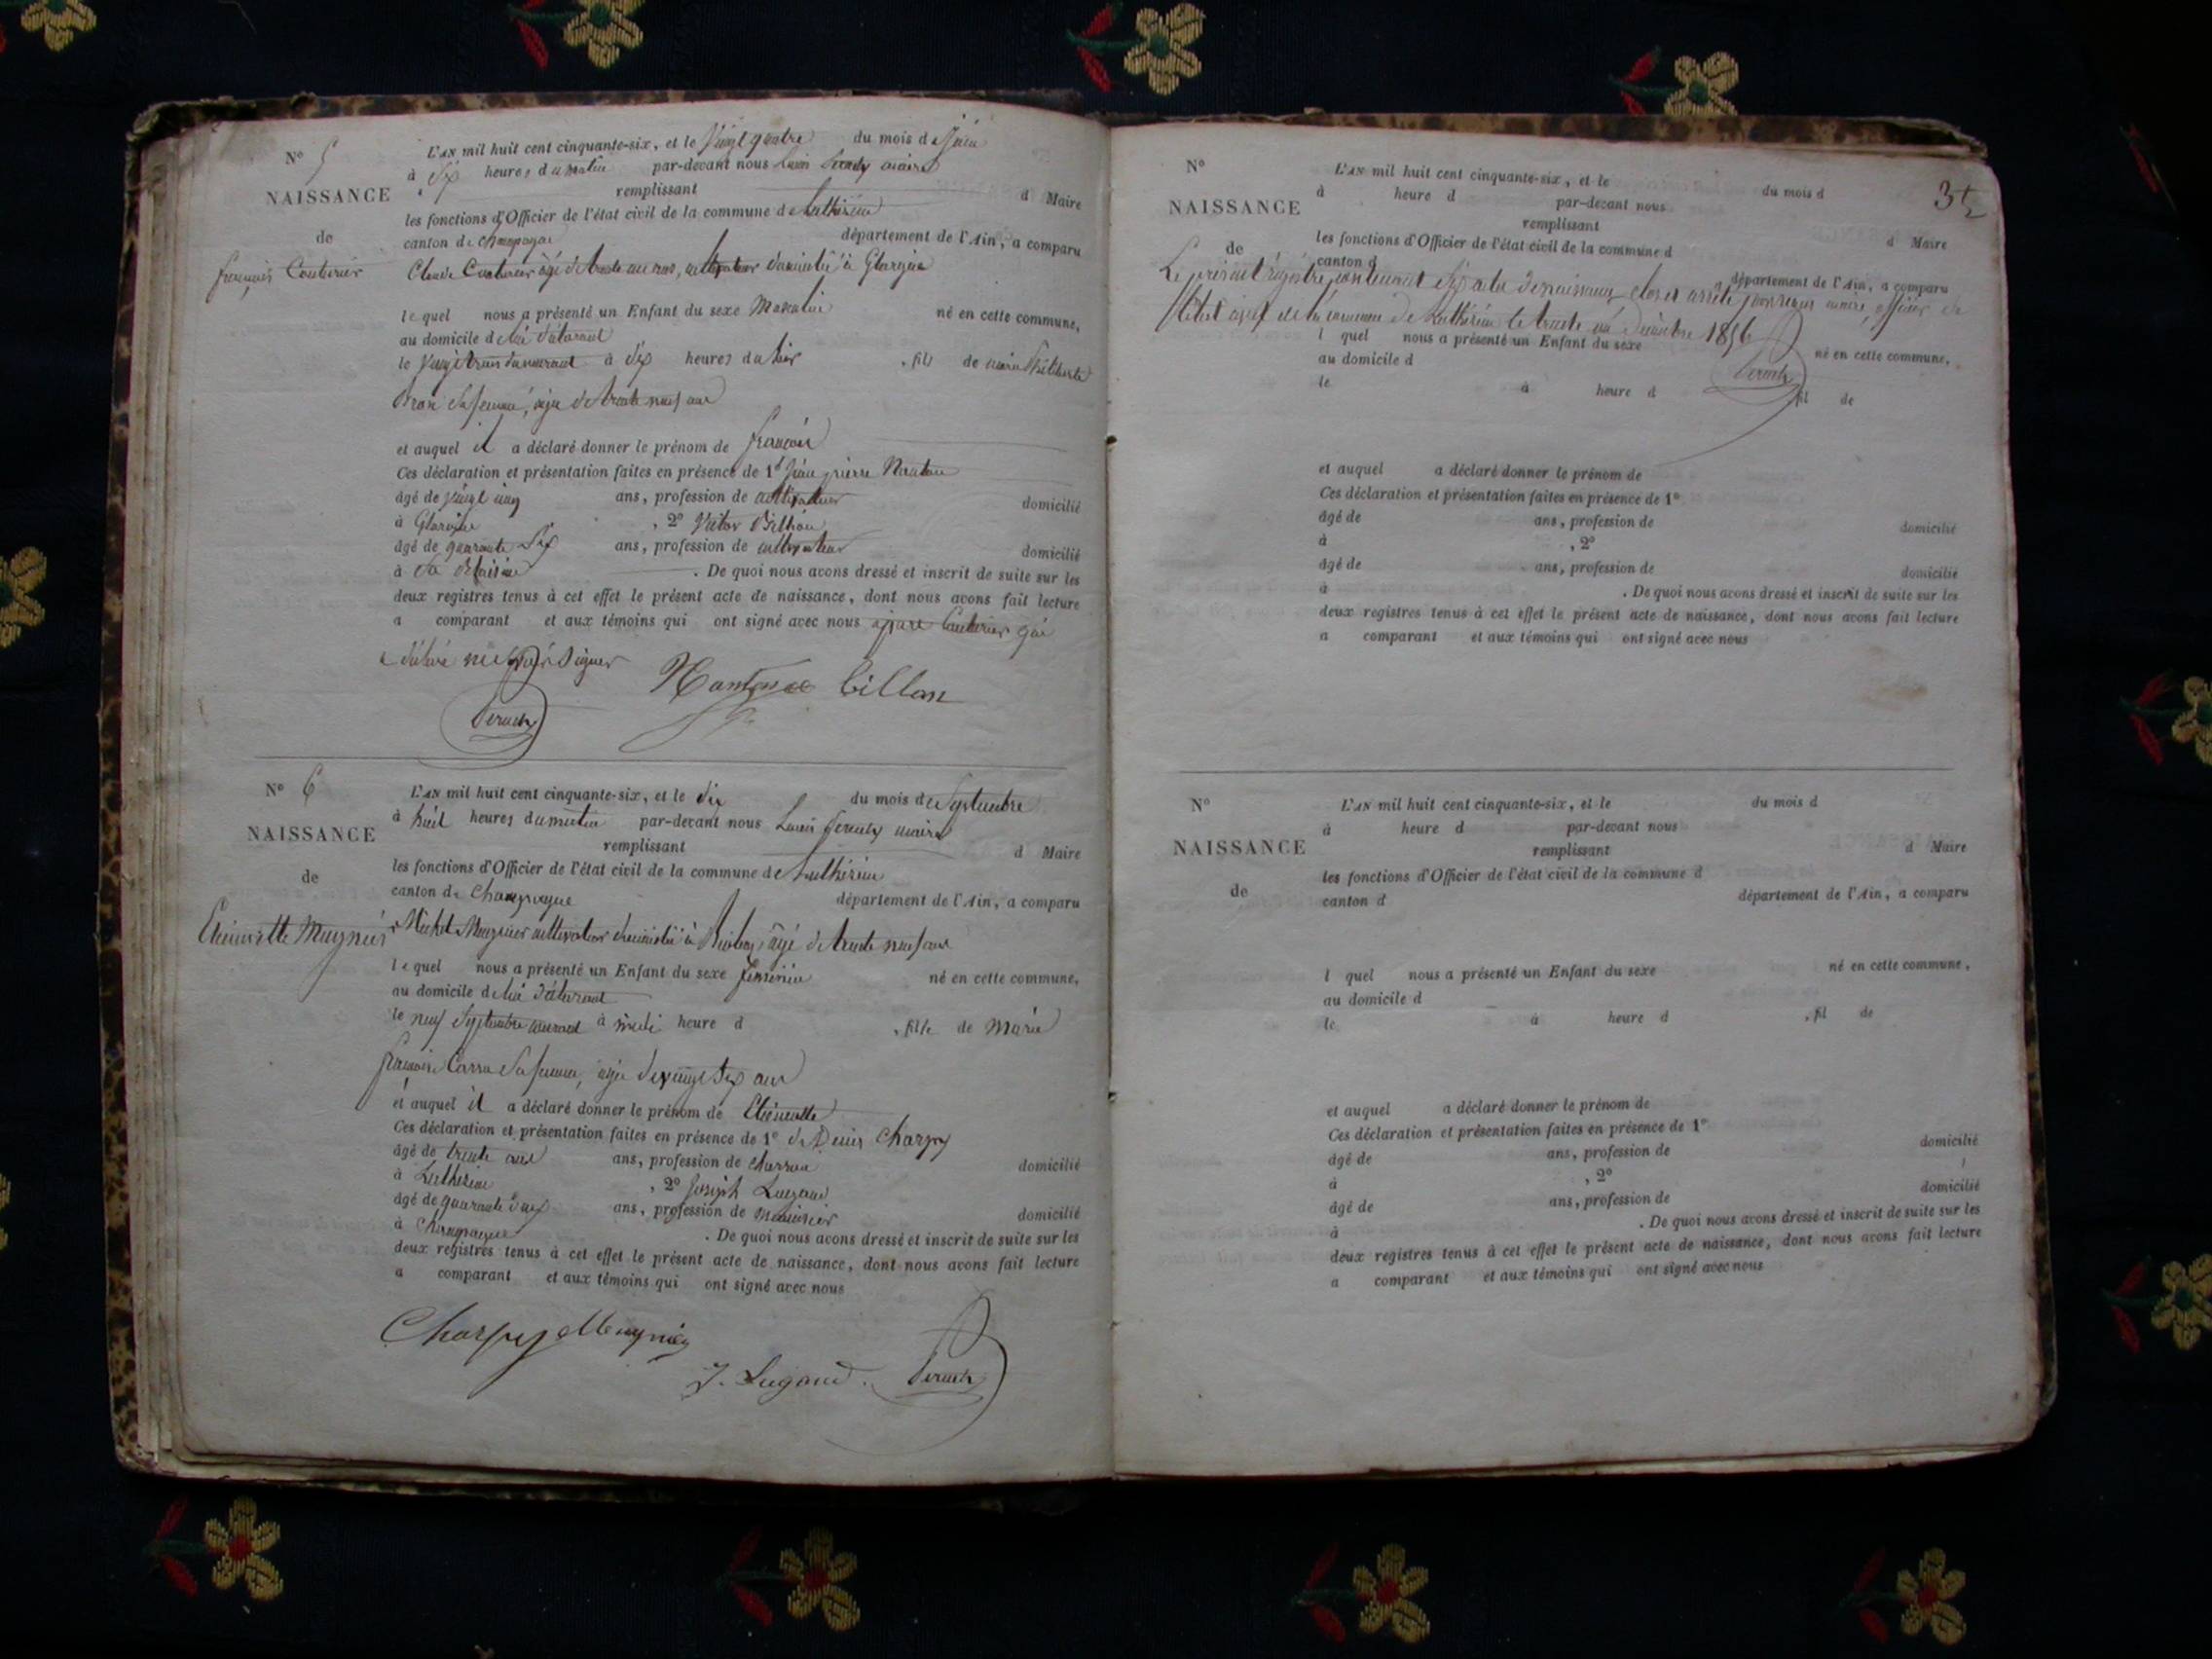 N° 5
L'AN mil huit cent cinquante-six, et le Vingt quatre du mois de Juin
à six heures du matin par-devant nous Louis maire
NAISSANCE
remplissant d Maire
les fonctions d'Officier de l'état civil de la commune de Luthézieu
de
canton de Champagne département de l'Ain, a comparu
françois Couturier
Claude Couturier âgé de trente ans, cultivateur domicilié à
lequel nous a présenté un Enfant du sexe Masculin né en cette commune,
au domicile de lui déclarant
le Vingt trois du courant à dix heures du soir, fils de
sa femme, âgée de trente neuf ans
et auquel il a déclaré donner le prénom de françois
Ces déclaration et présentation faites en présence de 1° Jean pierre
âgé de vingt cinq ans, profession de cultivateur domicilié
à , 2° Victor
âgé de quarante six ans, profession de cultivateur domicilié
à . De quoi nous avons dressé et inscrit de suite sur les
deux registres tenus à cet effet le présent acte de naissance, dont nous avons fait lecture
a comparant et aux témoins qui ont signé avec nous Couturier qui
a déclaré ne savoir signer
Billon
N° 6
L'AN mil huit cent cinquante-six, et le dix du mois de Septembre
à huit heures du matin par-devant nous Louis maire
NAISSANCE
remplissant d Maire
les fonctions d'Officier de l'état civil de la commune de Luthézieu
de
canton de Champagne département de l'Ain, a comparu
Etiennette Meygnier
Michel Meygnier cultivateur domicilié à âgé de trente neuf ans
lequel nous a présenté un Enfant du sexe féminin né en cette commune,
au domicile de lui déclarant
le neuf Septembre courant à midi heure d , fille de Marie
sa femme, âgée de vingt six ans
et auquel il a déclaré donner le prénom de Etiennette
Ces déclaration et présentation faites en présence de 1° de Denis Charpy
âgé de trente ans, profession de charron domicilié
à Luthézieu , 2° Joseph Lugand
âgé de quarante ans, profession de menuisier domicilié
à Champagne . De quoi nous avons dressé et inscrit de suite sur les
deux registres tenus à cet effet le présent acte de naissance, dont nous avons fait lecture
a comparant et aux témoins qui ont signé avec nous
Charpy Meygnier
J. Lugand.
N°
L'AN mil huit cent cinquante-six, et le du mois d
à heure d par-devant nous
NAISSANCE
remplissant d Maire
les fonctions d'Officier de l'état civil de la commune d
de
canton d département de l'Ain, a comparu
Le présent régistre contenant six actes de naissance clos et arrêté par nous maire, officier de
l'état civil de la commune de Luthézieu le trente un Décembre 1856
l quel nous a présenté un Enfant du sexe né en cette commune,
au domicile d
le à heure d , fil de
et auquel a déclaré donner le prénom de
Ces déclaration et présentation faites en présence de 1°
âgé de ans, profession de domicilié
à , 2°
âgé de ans, profession de domicilié
à . De quoi nous avons dressé et inscrit de suite sur les
deux registres tenus à cet effet le présent acte de naissance, dont nous avons fait lecture
a comparant et aux témoins qui ont signé avec nous
N°
L'AN mil huit cent cinquante-six, et le du mois d
à heure d par-devant nous
NAISSANCE
remplissant d Maire
les fonctions d'Officier de l'état civil de la commune d
de
canton d département de l'Ain, a comparu
l quel nous a présenté un Enfant du sexe né en cette commune,
au domicile d
le à heure d , fil de
et auquel a déclaré donner le prénom de
Ces déclaration et présentation faites en présence de 1°
âgé de ans, profession de domicilié
à , 2°
âgé de ans, profession de domicilié
à . De quoi nous avons dressé et inscrit de suite sur les
deux registres tenus à cet effet le présent acte de naissance, dont nous avons fait lecture
a comparant et aux témoins qui ont signé avec nous